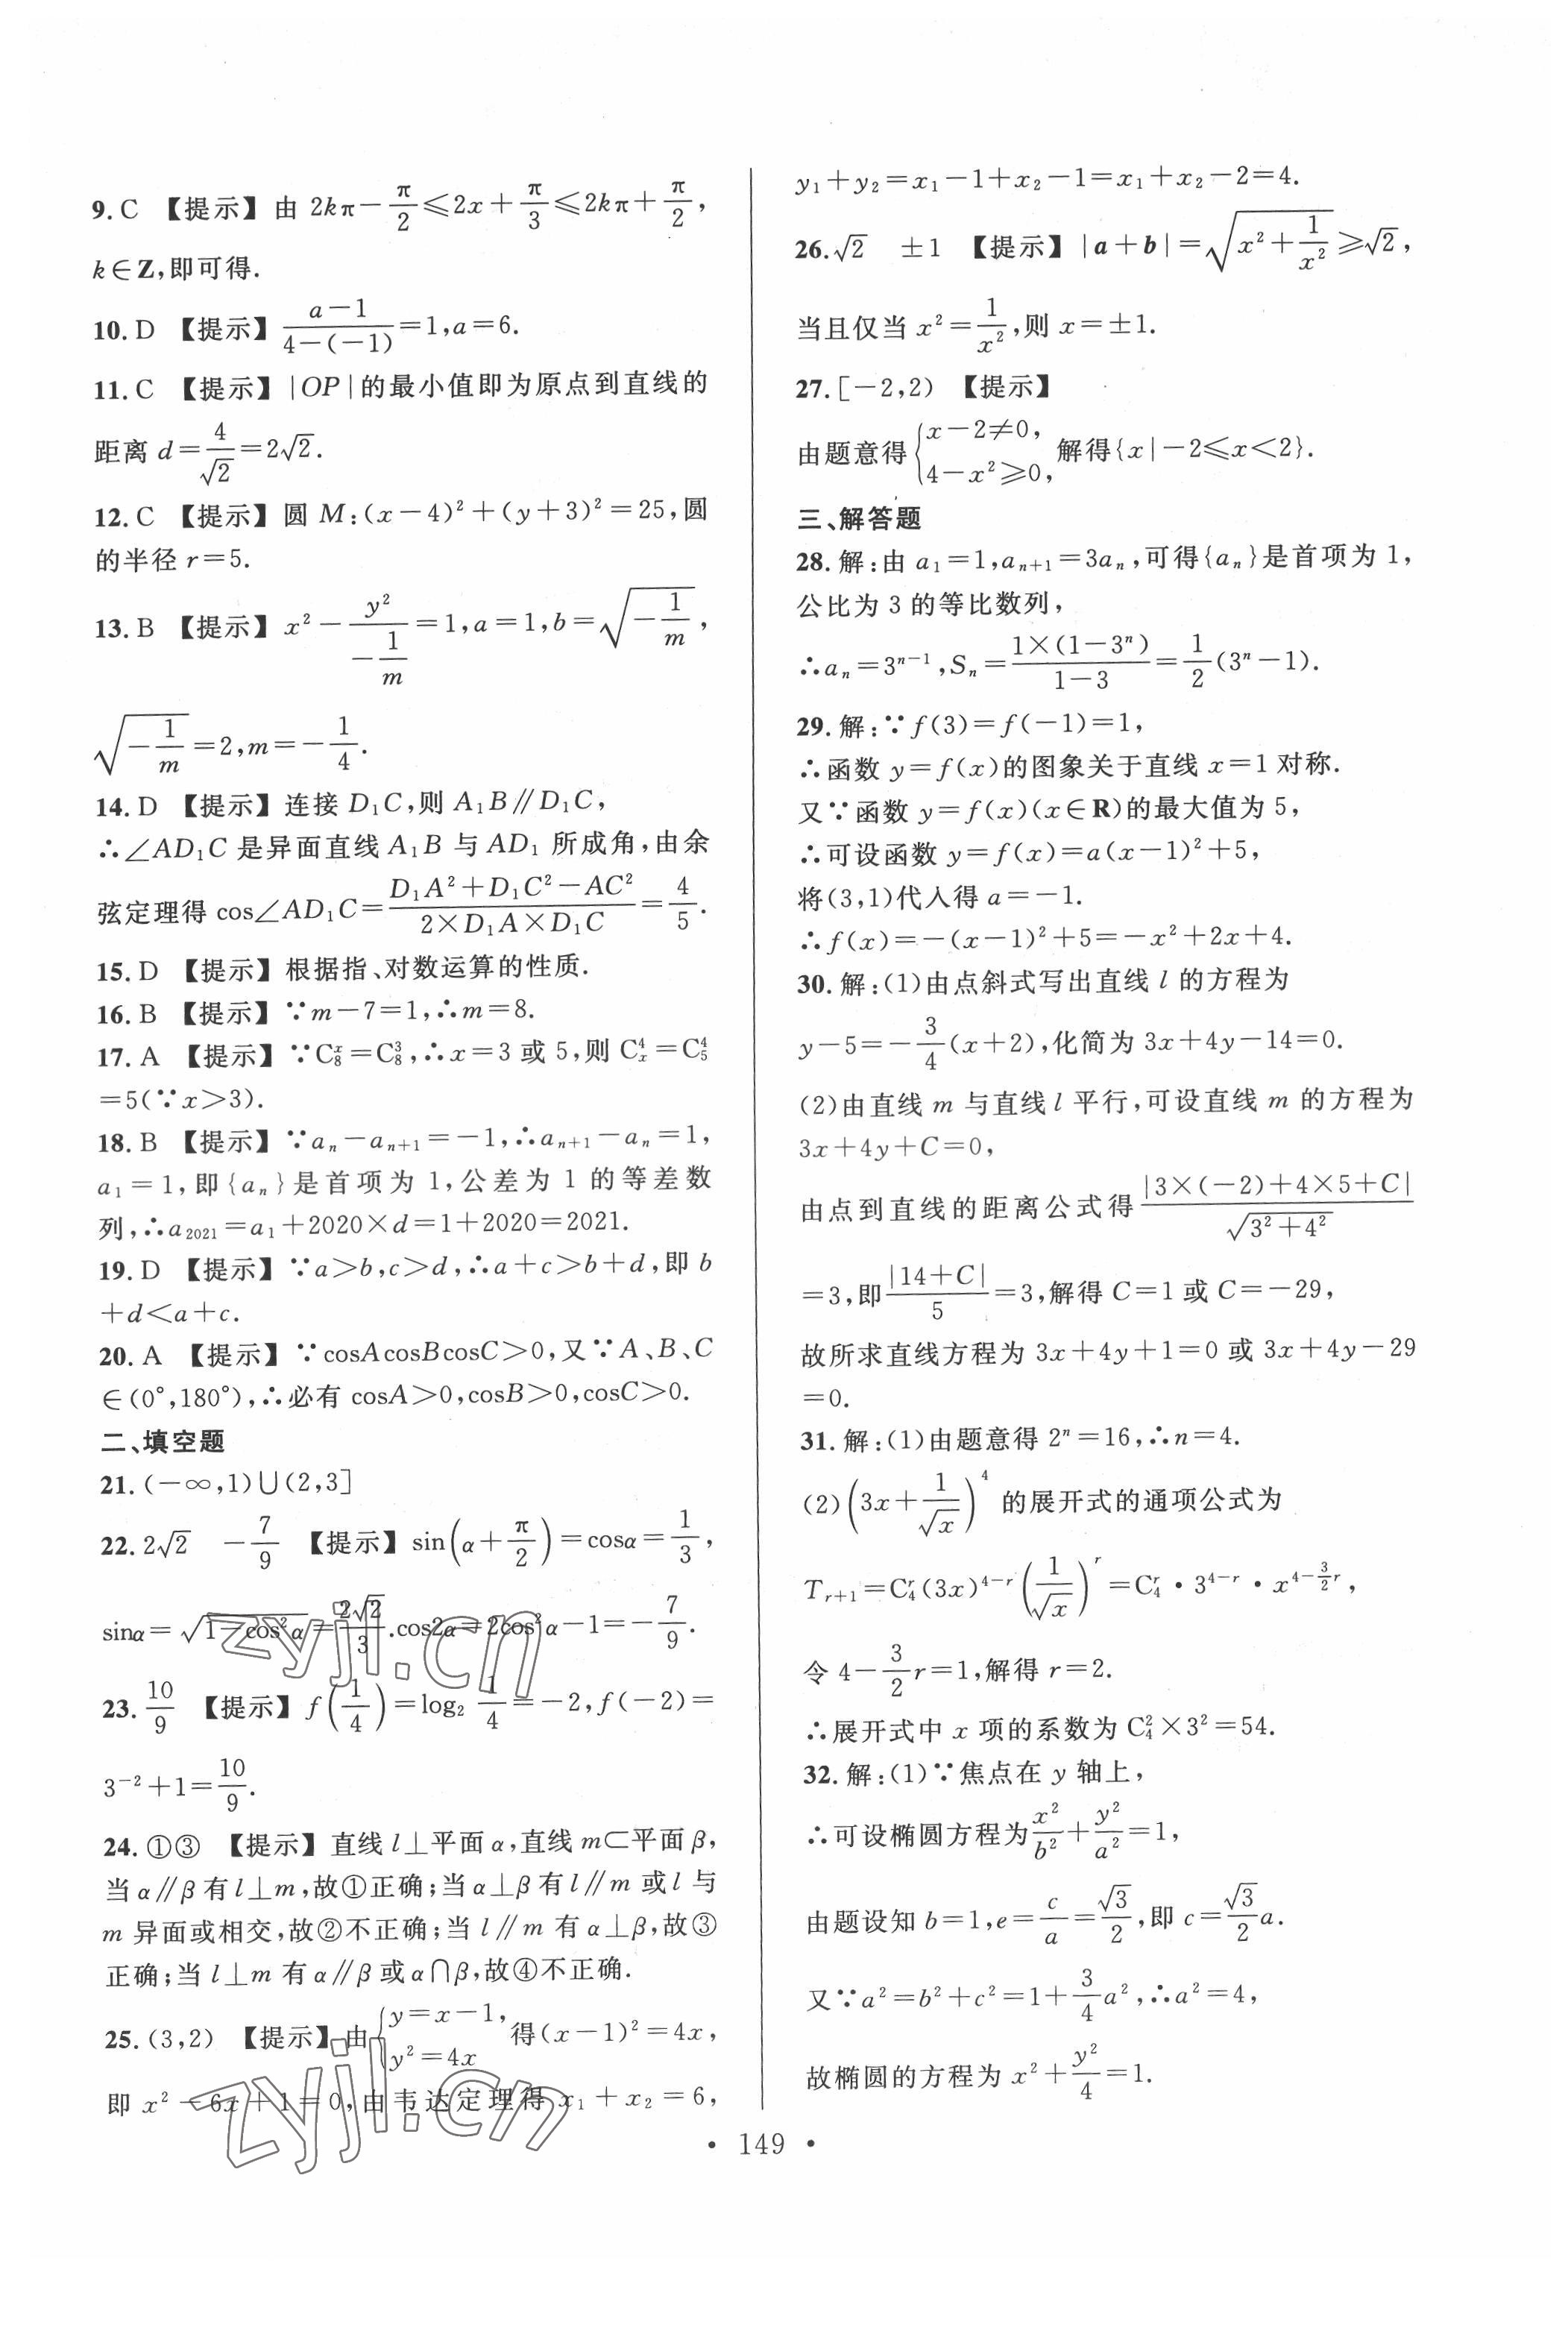 9. C 【提示】由 2kπ－π/2≤2x＋π/3≤2kπ＋π/2，
k∈Z,即可得.
10. D 【提示】(a－1)/(4－(－1))＝1,a＝6.
11. C 【提示】|OP|的最小值即为原点到直线的
距离 d＝4/√2＝2√2.
12. C 【提示】圆 M:(x－4)²＋(y＋3)²＝25,圆
的半径 r＝5.
13. B 【提示】x²－y²/(－1/m)＝1,a＝1,b＝√(－1/m)，
√(－1/m)＝2,m＝－1/4.
14. D 【提示】连接 D₁C,则 A₁B∥D₁C，
∴∠AD₁C 是异面直线 A₁B 与 AD₁ 所成角,由余
弦定理得 cos∠AD₁C＝(D₁A²＋D₁C²－AC²)/(2×D₁A×D₁C)＝4/5.
15. D 【提示】根据指、对数运算的性质.
16. B 【提示】∵m－7＝1,∴m＝8.
17. A 【提示】∵C₈ˣ＝C₈³,∴x＝3 或 5,则 Cₓ⁴＝C₅⁴
＝5(∵x＞3).
18. B 【提示】∵aₙ－aₙ₊₁＝－1,∴aₙ₊₁－aₙ＝1，
a₁＝1,即{aₙ}是首项为 1,公差为 1 的等差数
列,∴a₂₀₂₁＝a₁＋2020×d＝1＋2020＝2021.
19. D 【提示】∵a＞b,c＞d,∴a＋c＞b＋d,即 b
＋d＜a＋c.
20. A 【提示】∵cosAcosBcosC＞0,又∵A、B、C
∈(0°,180°),∴必有 cosA＞0,cosB＞0,cosC＞0.
二、填空题
21. (－∞,1)∪(2,3]
22. 2√2　－7/9 【提示】sin(α＋π/2)＝cosα＝1/3，
sinα＝√(1－cos²α)＝2√2/3.cos2α＝2cos²α－1＝－7/9.
23. 10/9 【提示】f(1/4)＝log₂ 1/4＝－2,f(－2)＝
3⁻²＋1＝10/9.
24. ①③ 【提示】直线 l⊥平面 α,直线 m⊂平面 β，
当 α∥β 有 l⊥m,故①正确;当 α⊥β 有 l∥m 或 l 与
m 异面或相交,故②不正确;当 l∥m 有 α⊥β,故③
正确;当 l⊥m 有 α∥β 或 α∩β,故④不正确.
25. (3,2) 【提示】由{y＝x－1, y²＝4x 得(x－1)²＝4x，
即 x²－6x＋1＝0,由韦达定理得 x₁＋x₂＝6，
y₁＋y₂＝x₁－1＋x₂－1＝x₁＋x₂－2＝4.
26. √2　±1 【提示】|a＋b|＝√(x²＋1/x²)≥√2，
当且仅当 x²＝1/x²,则 x＝±1.
27. [－2,2) 【提示】
由题意得{x－2≠0, 4－x²≥0, 解得{x|－2≤x＜2}.
三、解答题
28. 解:由 a₁＝1,aₙ₊₁＝3aₙ,可得{aₙ}是首项为 1，
公比为 3 的等比数列，
∴aₙ＝3ⁿ⁻¹,Sₙ＝1×(1－3ⁿ)/(1－3)＝1/2(3ⁿ－1).
29. 解:∵f(3)＝f(－1)＝1，
∴函数 y＝f(x)的图象关于直线 x＝1 对称.
又∵函数 y＝f(x)(x∈R)的最大值为 5，
∴可设函数 y＝f(x)＝a(x－1)²＋5，
将(3,1)代入得 a＝－1.
∴f(x)＝－(x－1)²＋5＝－x²＋2x＋4.
30. 解:(1)由点斜式写出直线 l 的方程为
y－5＝－3/4(x＋2),化简为 3x＋4y－14＝0.
(2)由直线 m 与直线 l 平行,可设直线 m 的方程为
3x＋4y＋C＝0，
由点到直线的距离公式得|3×(－2)＋4×5＋C|/√(3²＋4²)
＝3,即|14＋C|/5＝3,解得 C＝1 或 C＝－29，
故所求直线方程为 3x＋4y＋1＝0 或 3x＋4y－29
＝0.
31. 解:(1)由题意得 2ⁿ＝16,∴n＝4.
(2)(3x＋1/√x)⁴ 的展开式的通项公式为
Tᵣ₊₁＝C₄ʳ(3x)⁴⁻ʳ(1/√x)ʳ＝C₄ʳ·3⁴⁻ʳ·x^(4－3/2 r)，
令 4－3/2 r＝1,解得 r＝2.
∴展开式中 x 项的系数为 C₄²×3²＝54.
32. 解:(1)∵焦点在 y 轴上，
∴可设椭圆方程为x²/b²＋y²/a²＝1，
由题设知 b＝1,e＝c/a＝√3/2,即 c＝√3/2 a.
又∵a²＝b²＋c²＝1＋3/4 a²,∴a²＝4，
故椭圆的方程为 x²＋y²/4＝1.
· 149 ·
zyjl.cn
zyjl.cn